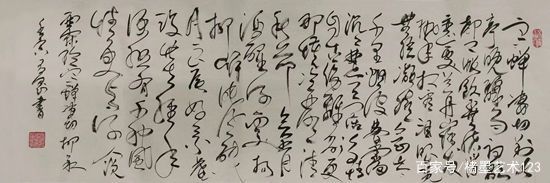 寒蝉凄切对长
亭晚骤雨初歇
都门帐饮无绪
留恋处兰舟催发
执手相看泪眼
竟无语凝噎念去去
千里烟波暮霭
沉沉楚天阔多情
自古伤离别更
那堪冷落清
秋节今宵
酒醒何处杨
柳岸晓风残
月此去经年
应是良辰好景虚
设便纵有千种风
情更与何人说
雨霖铃寒蝉凄切柳永
书
百家号/楮墨艺术123